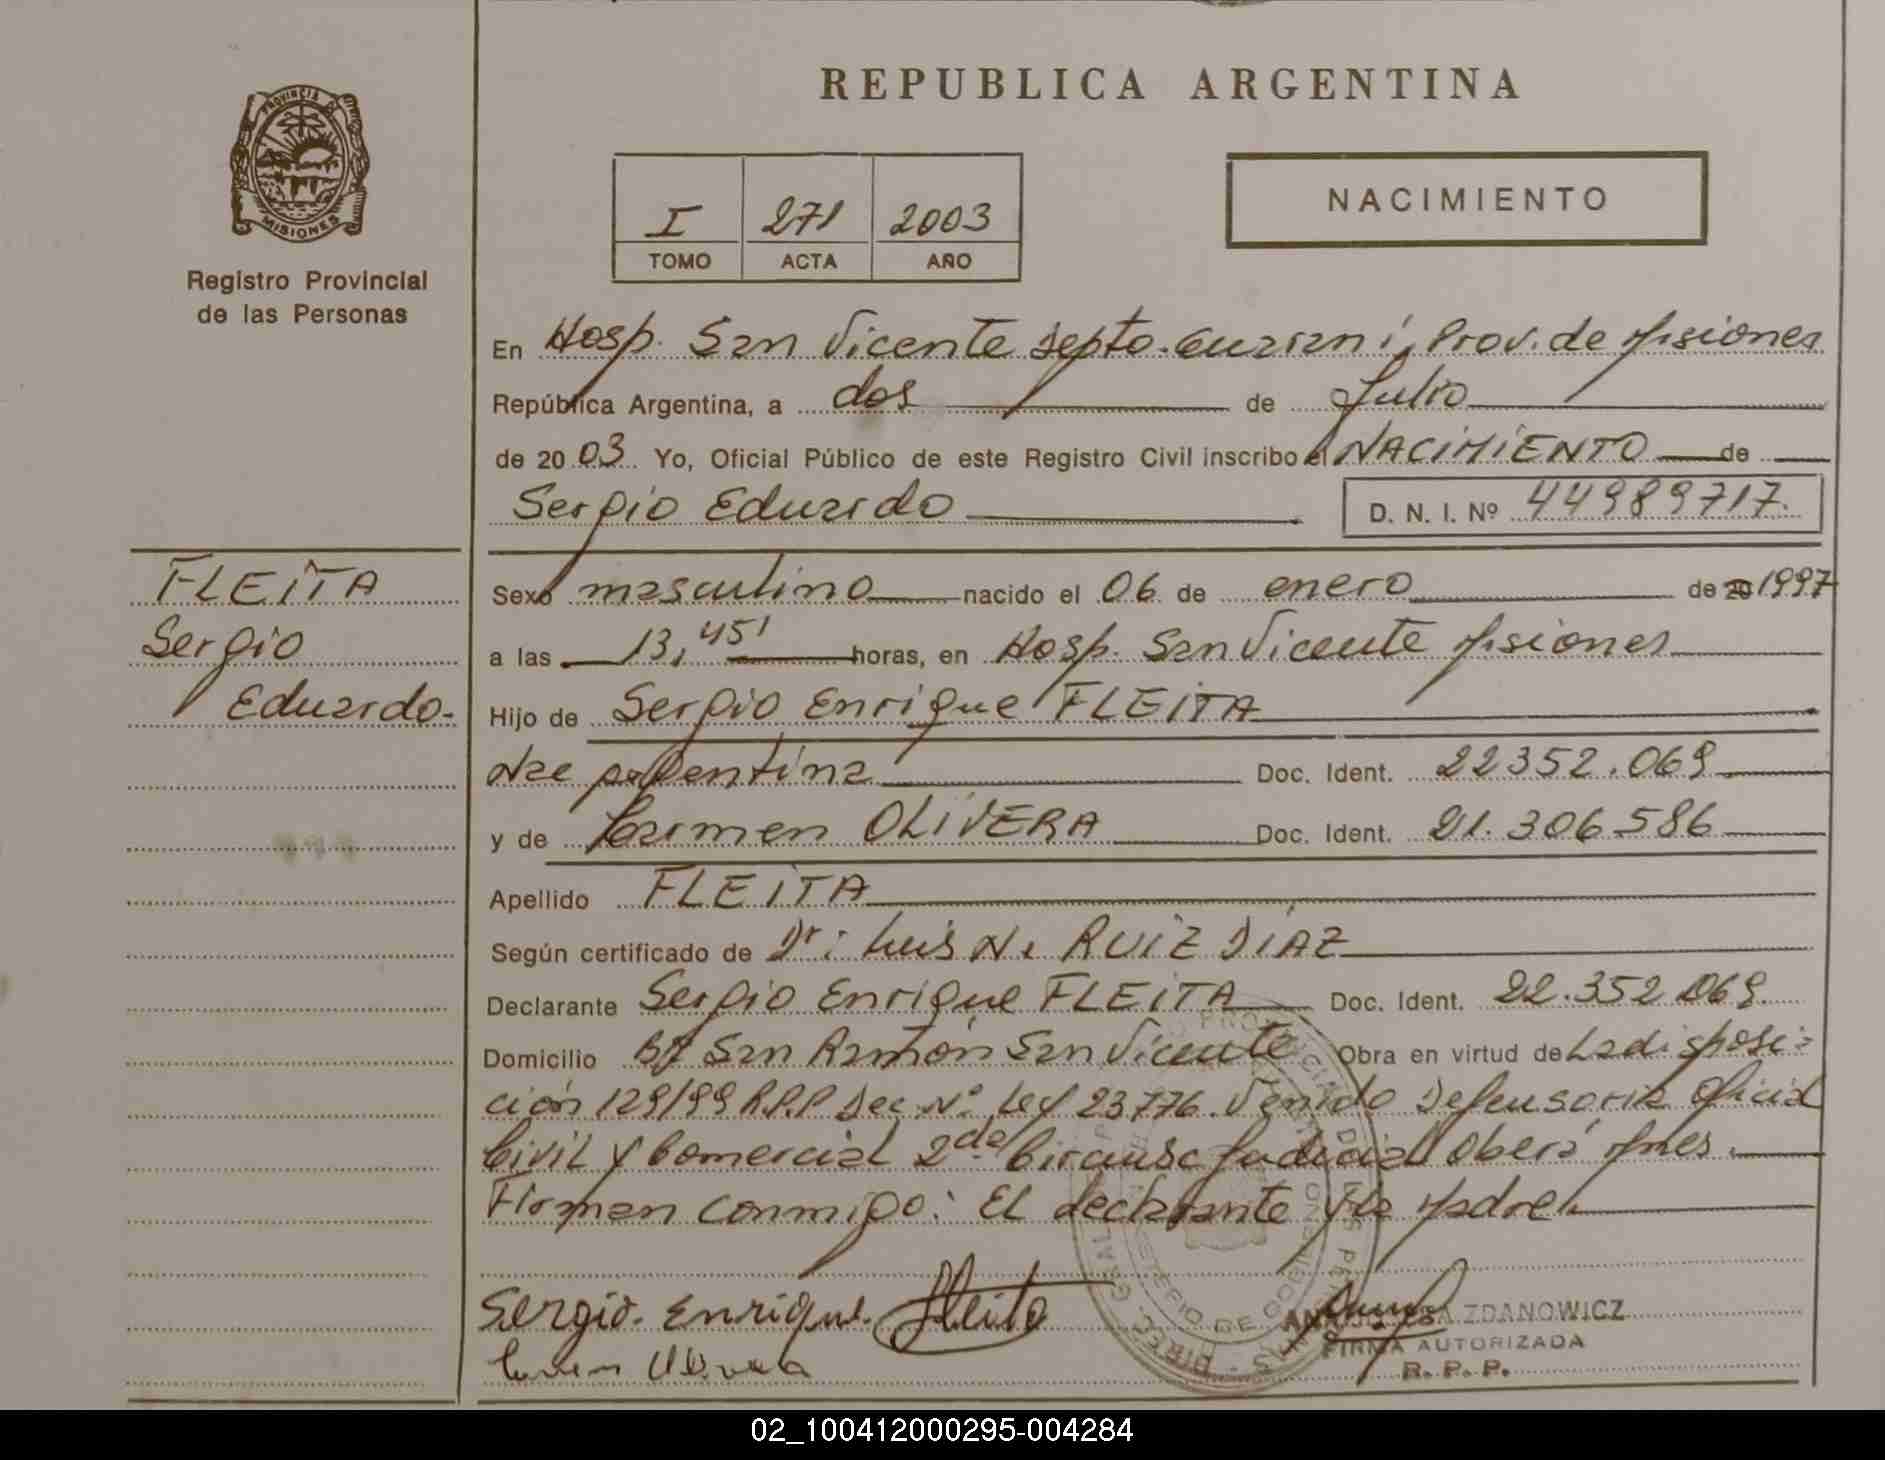 PROVINCIA DE
MISIONES
Registro Provincial
de las Personas
FLEITA
Sergio
Eduardo.
REPUBLICA ARGENTINA
I 271 2003
TOMO ACTA AÑO
NACIMIENTO
En Hosp. San Vicente Depto. Guarani, Prov. de Misiones
República Argentina, a dos de Julio
de 2003 Yo, Oficial Público de este Registro Civil inscribo el NACIMIENTO de
Sergio Eduardo D. N. I. Nº 44989717.
Sexo masculino nacido el 06 de enero de 20 1997
a las 13,45' horas, en Hosp. San Vicente Misiones
Hijo de Sergio Enrique FLEITA
Nac argentina Doc. Ident. 22352.069
y de Carmen OLIVERA Doc. Ident. 21.306.586
Apellido FLEITA
Según certificado de Dr: Luis N. RUIZ DIAZ
Declarante Sergio Enrique FLEITA Doc. Ident. 22.352.069.
Domicilio Bº San Ramón San Vicente Obra en virtud de La disposi-
ción 129/99 R.P.P Dec. Nº Ley 23776. Venido Defensoria Oficial
Civil y Comercial 2da Circunsc Judicial Oberá Mnes.
Firman conmigo: El declarante y la Madre
Sergio. Enrique. Fleita
Carmen Olivera
ZDANOWICZ
FIRMA AUTORIZADA
R. P. P.
02_100412000295-004284